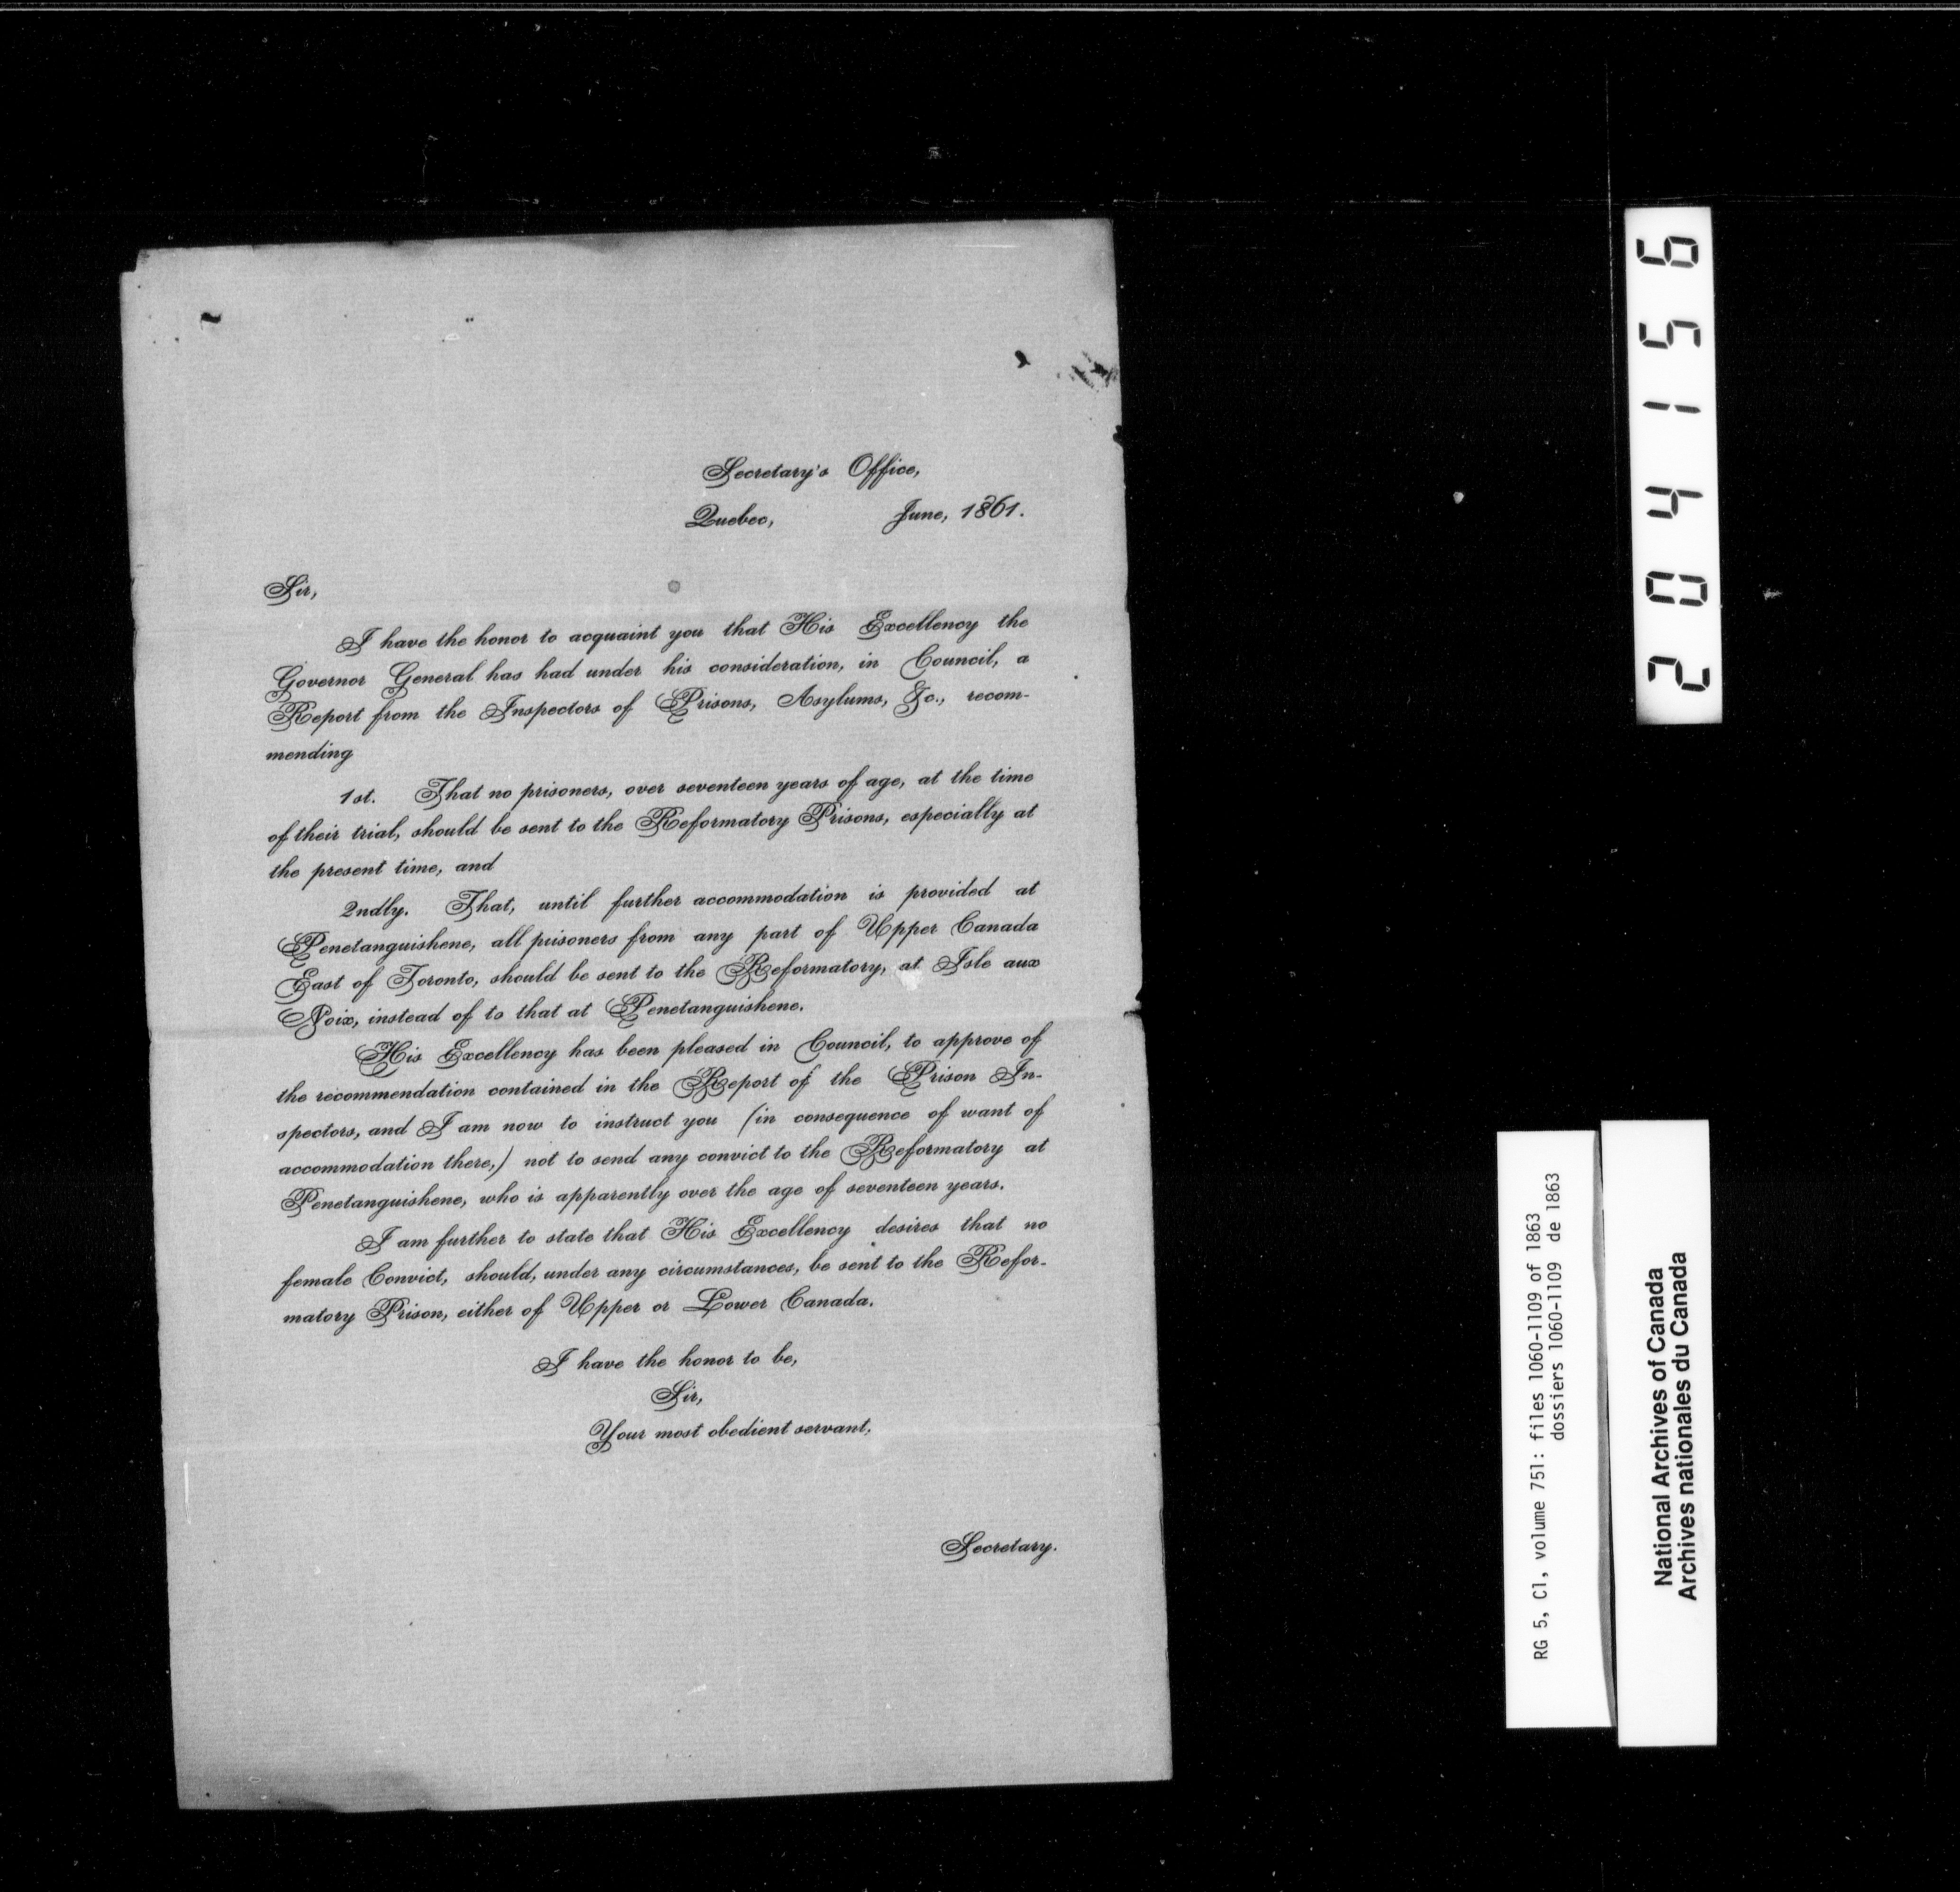 Secretary's Office,
Quebec, June, 1861.
Sir,
I have the honor to acquaint you that His Excellency the
Governor General has had under his consideration, in Council, a
Report from the Inspectors of Prisons, Asylums, &c., recom-
mending
1st. That no prisoners, over seventeen years of age, at the time
of their trial, should be sent to the Reformatory Prisons, especially at
the present time, and
2ndly. That, until further accommodation is provided at
Penetanguishene, all prisoners from any part of Upper Canada
East of Toronto, should be sent to the Reformatory, at Isle aux
Noix, instead of to that at Penetanguishene.
His Excellency has been pleased in Council, to approve of
the recommendation contained in the Report of the Prison In-
spectors, and I am now to instruct you (in consequence of want of
accommodation there,) not to send any convict to the Reformatory at
Penetanguishene, who is apparently over the age of seventeen years.
I am further to state that His Excellency desires that no
female Convict, should, under any circumstances, be sent to the Refor-
matory Prison, either of Upper or Lower Canada.
I have the honor to be,
Sir,
Your most obedient servant,
Secretary.
204156
RG 5, C1, volume 751: files 1060-1109 of 1863
dossiers 1060-1109 de 1863
National Archives of Canada
Archives nationales du Canada